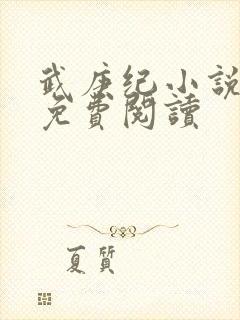 武庚纪小说
免費閱讀
夏質